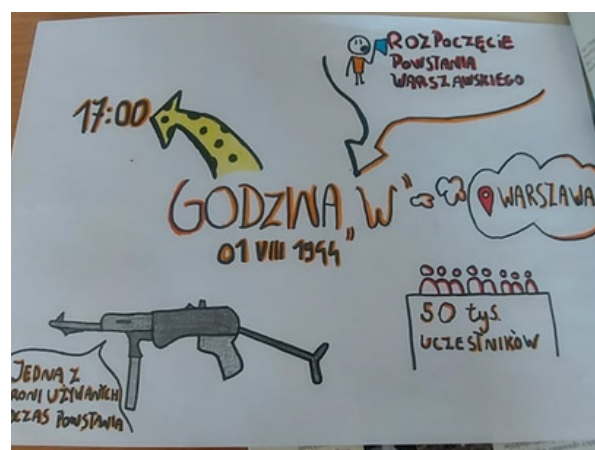 ROZPOCZĘCIE
POWSTANIA
WARSZAWSKIEGO
17:00
GODZINA „W”
01 VIII 1944
WARSZAWA
50 tys.
UCZESTNIKÓW
JEDNA Z
RONI UŻYWANYCH
CZAS POWSTANIA